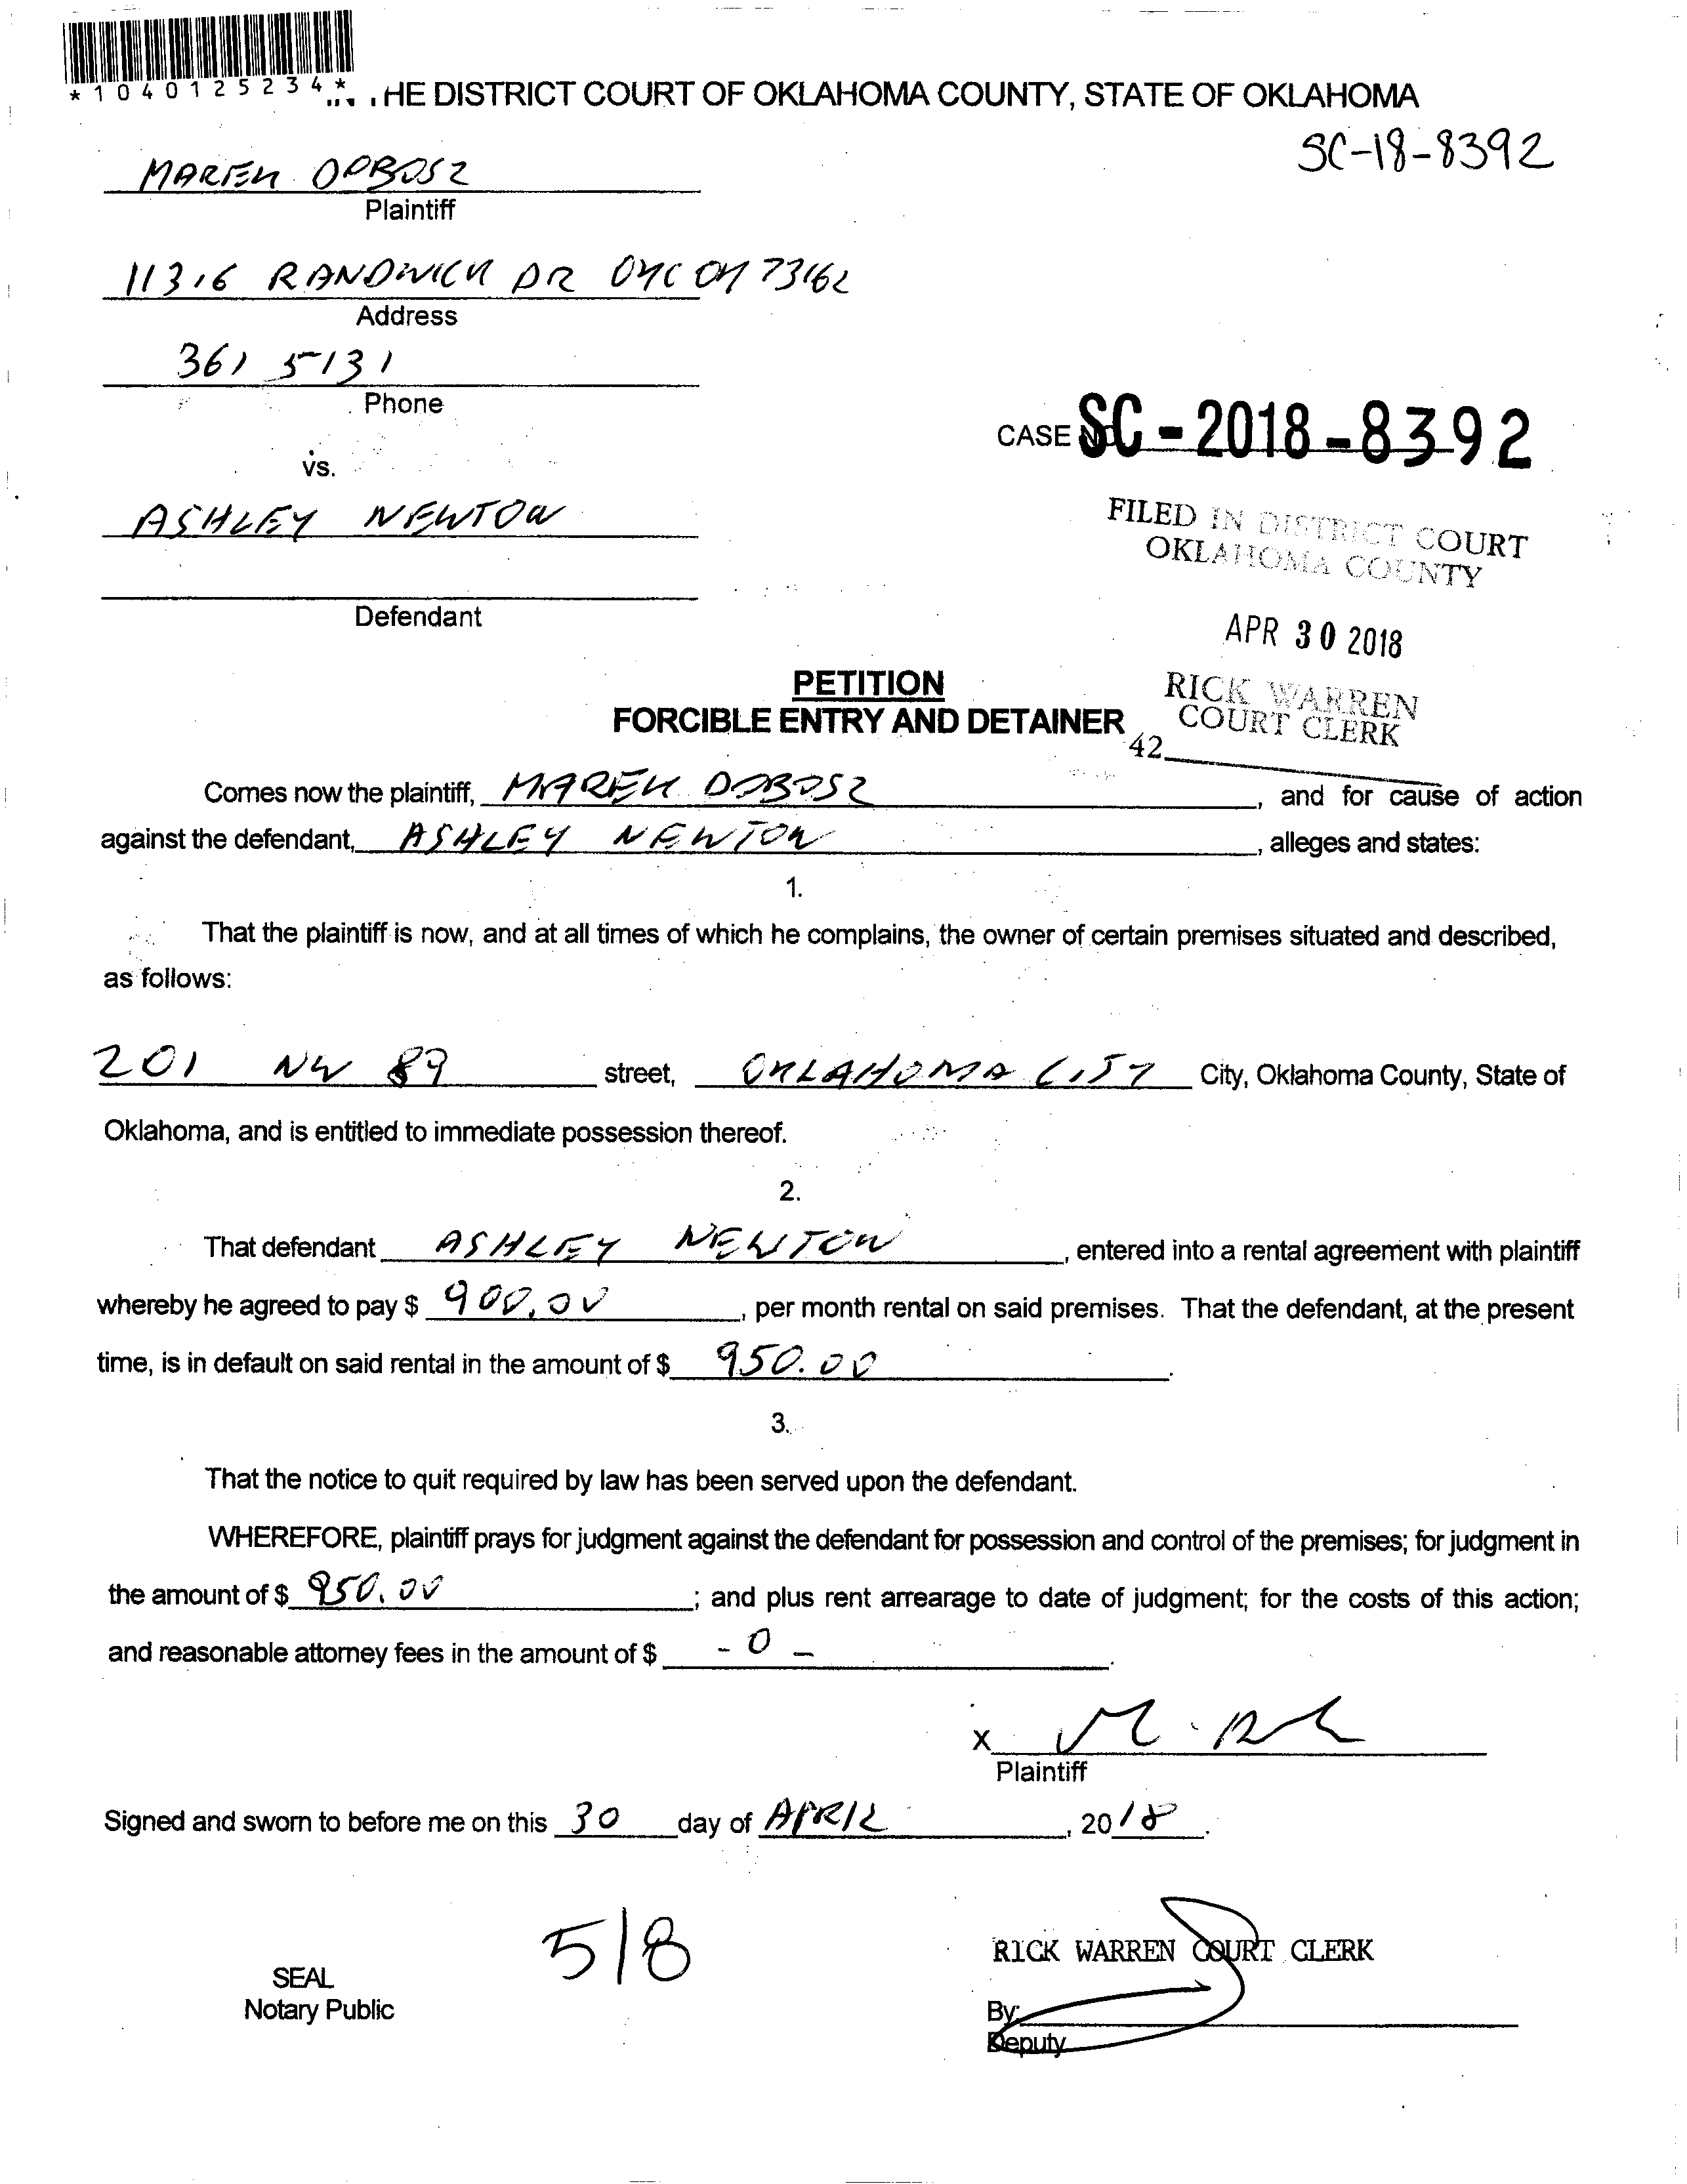 *1040125234*
HE DISTRICT COURT OF OKLAHOMA COUNTY, STATE OF OKLAHOMA
SC-18-8392
MAREK DOBOSZ
Plaintiff
11316 RANDWICK DR OKC OK 73162
Address
361 5131
Phone
CASE NO. SC-2018-8392
vs.
ASHLEY NEWTON
FILED IN DISTRICT COURT
OKLAHOMA COUNTY
Defendant
APR 30 2018
PETITION
RICK WARREN
FORCIBLE ENTRY AND DETAINER
COURT CLERK
42
Comes now the plaintiff, MAREK DOBOSZ, and for cause of action
against the defendant, ASHLEY NEWTON, alleges and states:
1.
That the plaintiff is now, and at all times of which he complains, the owner of certain premises situated and described,
as follows:
201 NW 89 street, OKLAHOMA CITY City, Oklahoma County, State of
Oklahoma, and is entitled to immediate possession thereof.
2.
That defendant ASHLEY NEWTON, entered into a rental agreement with plaintiff
whereby he agreed to pay $ 900.00, per month rental on said premises. That the defendant, at the present
time, is in default on said rental in the amount of $ 950.00.
3.
That the notice to quit required by law has been served upon the defendant.
WHEREFORE, plaintiff prays for judgment against the defendant for possession and control of the premises; for judgment in
the amount of $ 950.00; and plus rent arrearage to date of judgment; for the costs of this action;
and reasonable attorney fees in the amount of $ -0-.
X
Plaintiff
Signed and sworn to before me on this 30 day of APRIL, 2018.
5/8
RICK WARREN COURT CLERK
SEAL
Notary Public
By:
Deputy